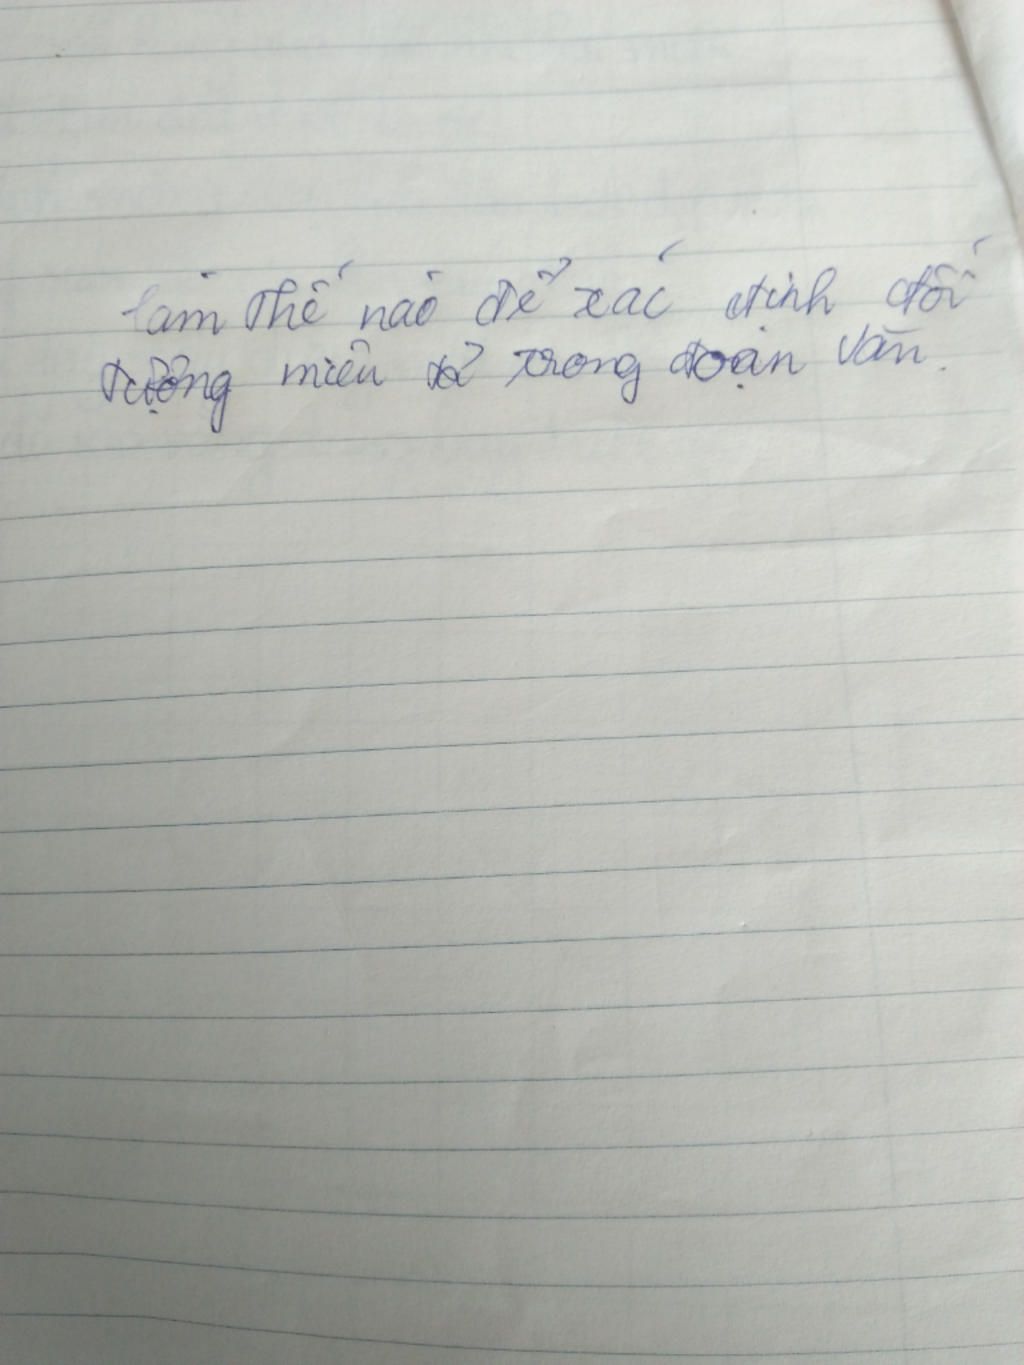 làm thế nào để xác định đối
tượng miêu tả trong đoạn văn.